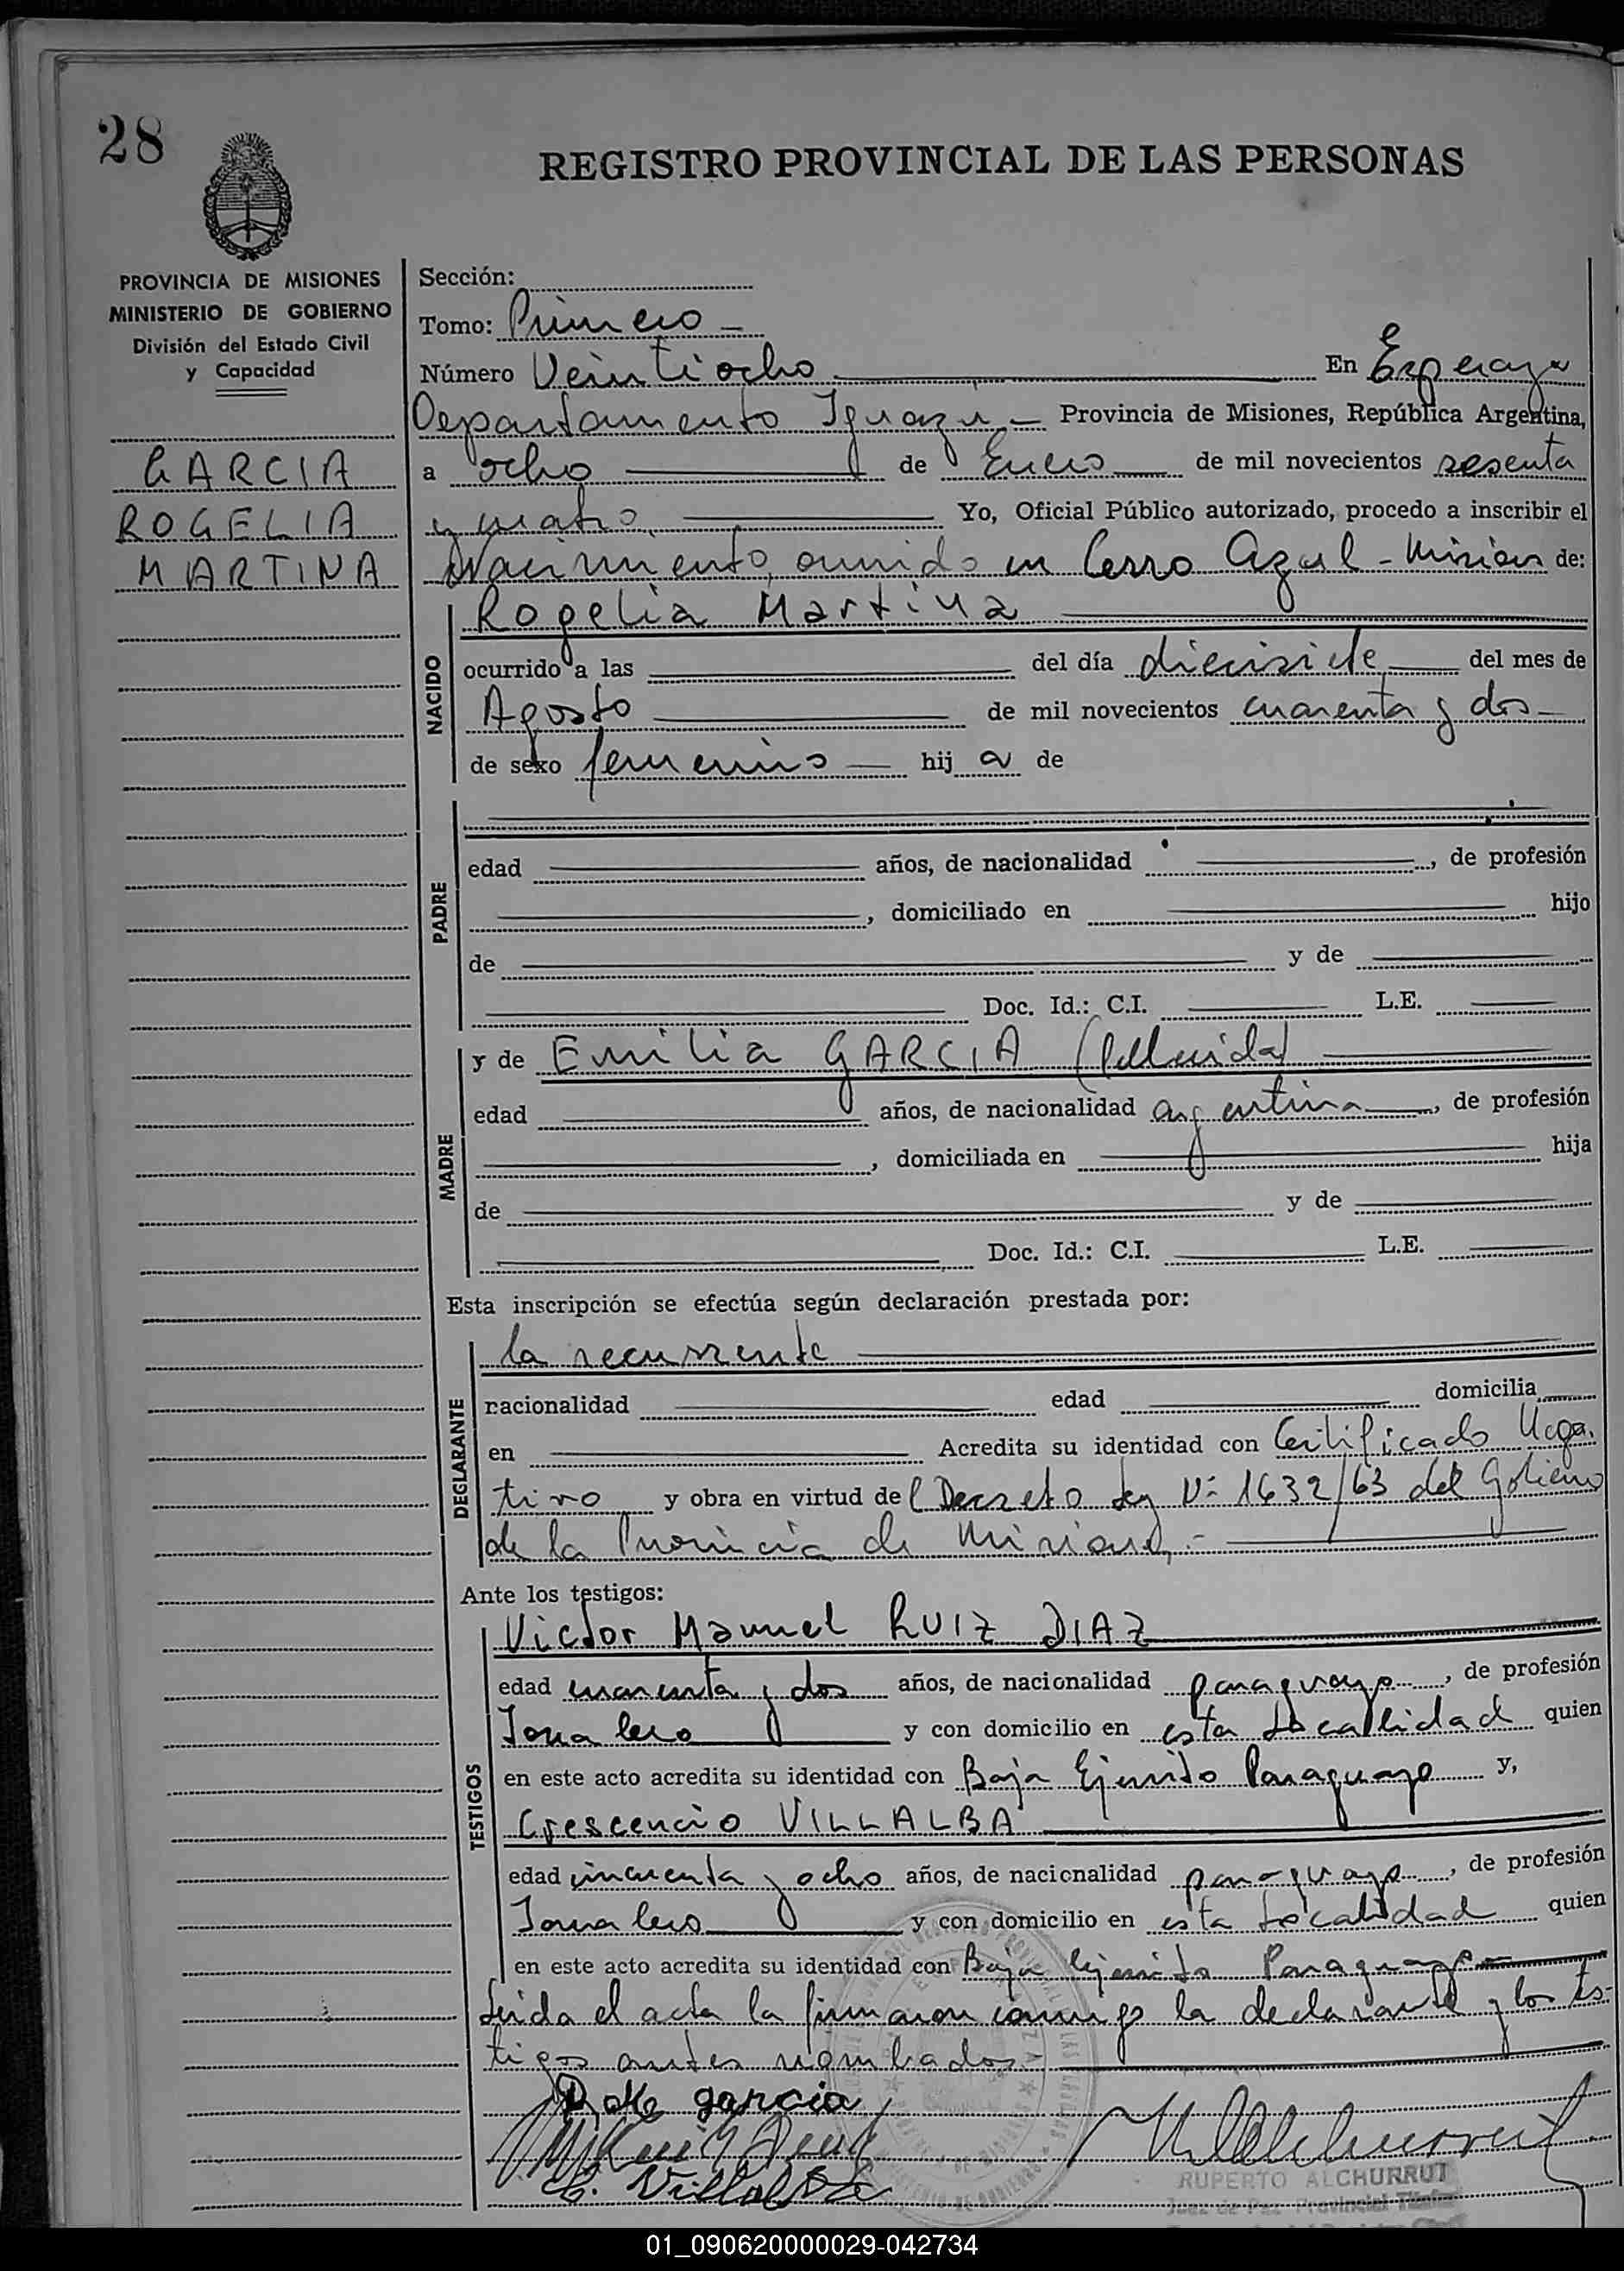 28
REGISTRO PROVINCIAL DE LAS PERSONAS
PROVINCIA DE MISIONES
MINISTERIO DE GOBIERNO
División del Estado Civil
y Capacidad
GARCIA
ROGELIA
MARTINA
Sección:
Tomo: Primero
Número Veintiocho En Esperaza
Departamento Iguazú - Provincia de Misiones, República Argentina,
a ocho de Enero de mil novecientos sesenta
y cuatro Yo, Oficial Público autorizado, procedo a inscribir el
Nacimiento, ocurrido en Cerro Azul - Misiones de:
NACIDO
Rogelia Martina
ocurrido a las del día diecisiete del mes de
Agosto de mil novecientos cuarenta y dos -
de sexo femenino hij a de
PADRE
edad años, de nacionalidad , de profesión
, domiciliado en hijo
de y de
Doc. Id.: C.I. L.E.
MADRE
y de Emilia GARCIA (fallecida)
edad años, de nacionalidad argentina , de profesión
, domiciliada en hija
de y de
Doc. Id.: C.I. L.E.
Esta inscripción se efectúa según declaración prestada por:
DECLARANTE
la recurrente
nacionalidad edad domicilia
en Acredita su identidad con Certificado Nega
tivo y obra en virtud del Decreto Ley Nº 1632/63 del Gobierno
de la Provincia de Misiones.-
Ante los testigos:
TESTIGOS
Victor Manuel RUIZ DIAZ
edad cuarenta y dos años, de nacionalidad paraguayo , de profesión
Jornalero y con domicilio en esta localidad quien
en este acto acredita su identidad con Baja Ejercito Paraguayo y,
Crescencio VILLALBA
edad cincuenta y ocho años, de nacionalidad paraguayo , de profesión
Jornalero y con domicilio en esta localidad quien
en este acto acredita su identidad con Baja Ejercito Paraguayo
Leida el acta la firmaron conmigo la declarante y los tes-
tigos antes nombrados.-
R. M. garcia
C. Villalba
RUPERTO ALCHURRUT
Juez de Paz Provincial Titular
01_090620000029-042734